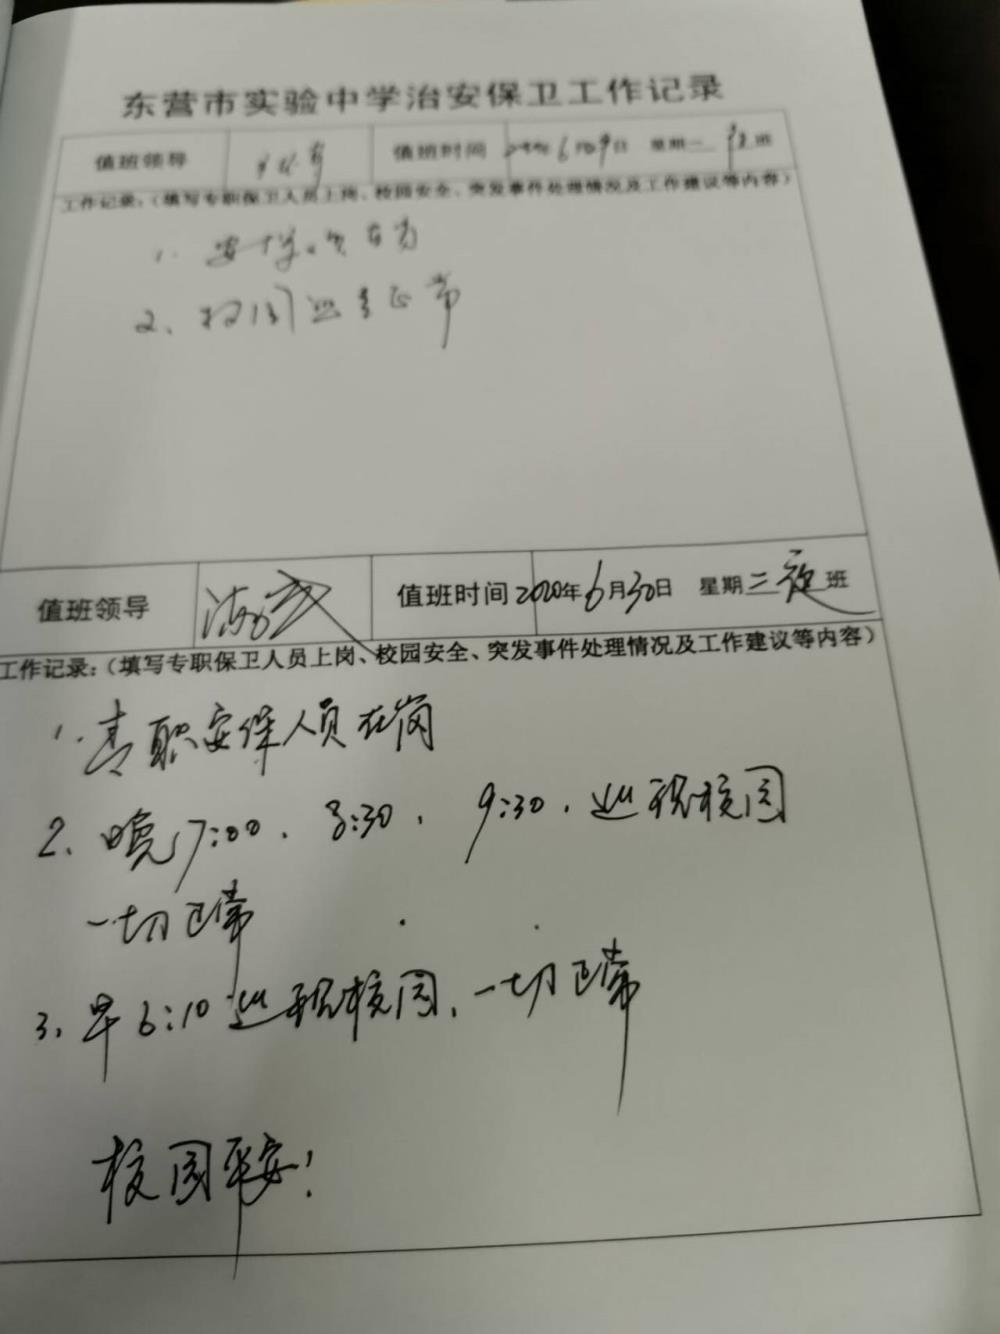 东营市实验中学治安保卫工作记录
值班领导 值班时间 6月 日 星期 班
工作记录:(填写专职保卫人员上岗、校园安全、突发事件处理情况及工作建议等内容)
1. 安保
2、校园 正常
值班领导 值班时间 2020年6月30日 星期二夜班
工作记录:(填写专职保卫人员上岗、校园安全、突发事件处理情况及工作建议等内容)
1. 专职安保人员在岗
2、晚7:00、8:30、9:30、巡视校园
一切正常
3、早6:10巡视校园、一切正常
校园平安!